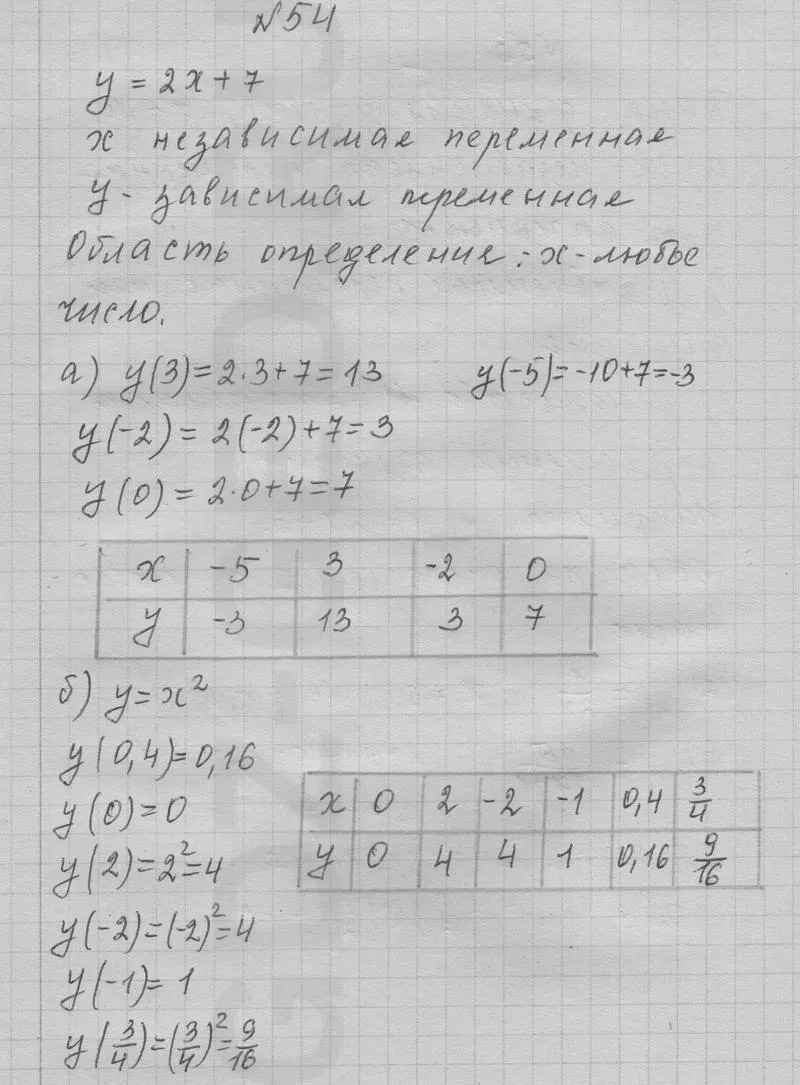 №54
y = 2x + 7
x независимая переменная
y - зависимая переменная
Область определения: x - любое
число.
а) y(3) = 2·3 + 7 = 13 y(-5) = -10 + 7 = -3
y(-2) = 2(-2) + 7 = 3
y(0) = 2·0 + 7 = 7
x -5 3 -2 0
y -3 13 3 7
б) y = x²
y(0,4) = 0,16
y(0) = 0
y(2) = 2² = 4
y(-2) = (-2)² = 4
y(-1) = 1
y(3/4) = (3/4)² = 9/16
x 0 2 -2 -1 0,4 3/4
y 0 4 4 1 0,16 9/16